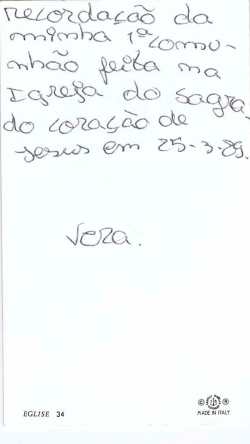 recordação da
minha 1ª comu-
nhão feita na
Igreja do Sagra-
do coração de
Jesus em 25-3-89.
Vera.
EGLISE 34
MADE IN ITALY